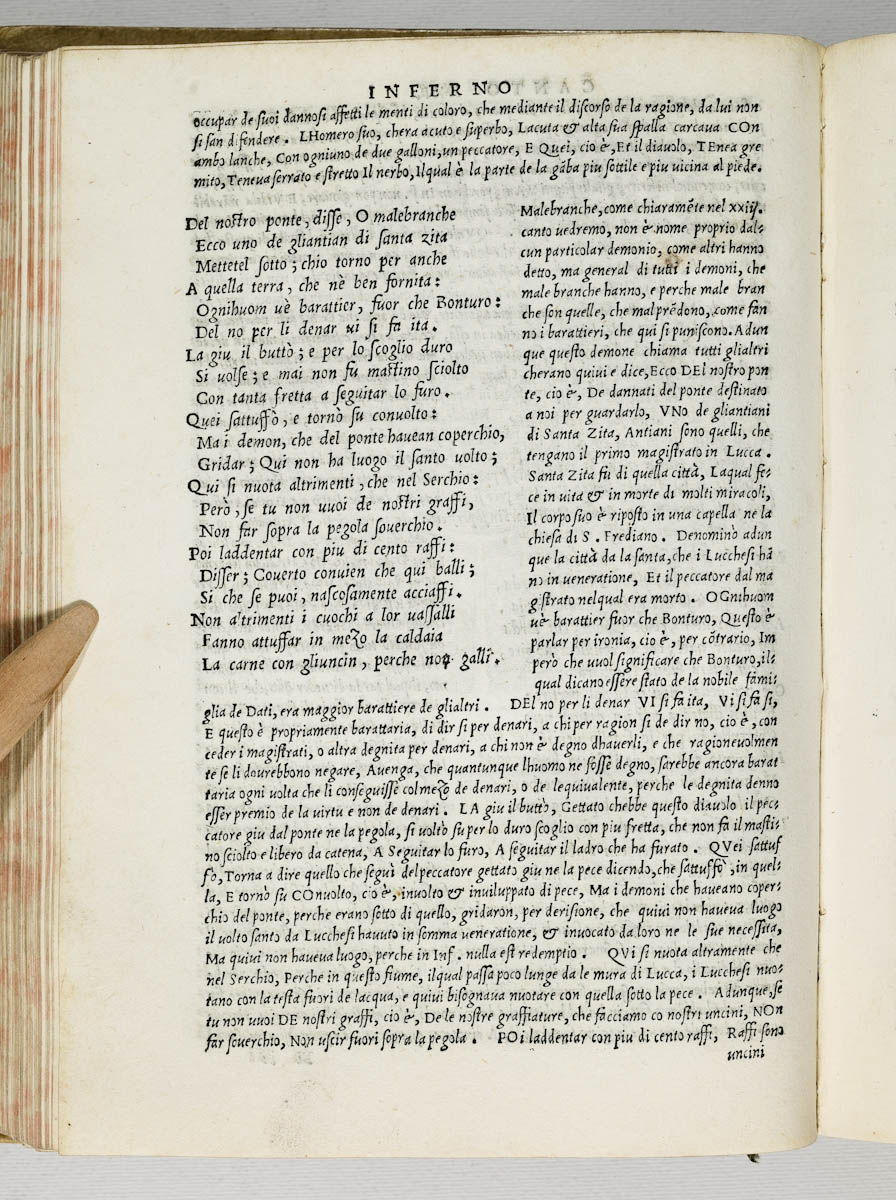 INFERNO
occupar de suoi dannosi affetti le menti di coloro, che mediante il discorso de la ragione, da lui non
si san difendere . LHomero suo, chera acuto e superbo, Lacuta & alta sua spalla carcaua COn
ambo lanche, Con ogniuno de due galloni, un peccatore, E Quei, cio è, Et il diauolo, TEnea gre
mito, Teneua serrato e stretto Il neruo, Ilqual è la parte de la gãba piu sottile e piu uicina al piede.
Del nostro ponte, disse, O malebranche
Ecco uno de gliantian di santa zita
Mettetel sotto; chio torno per anche
A quella terra, che nè ben fornita:
Ognihuom uè barattier, fuor che Bonturo:
Del no per li denar ui si fa ita.
La giu il buttò; e per lo scoglio duro
Si uolse; e mai non fu mastino sciolto
Con tanta fretta a seguitar lo furo.
Quei sattuffò, e tornò su conuolto:
Ma i demon, che del ponte hauean coperchio,
Gridar; Qui non ha luogo il santo uolto;
Qui si nuota altrimenti, che nel Serchio:
Però, se tu non uuoi de nostri graffi,
Non far sopra la pegola souerchio.
Poi laddentar con piu di cento raffi:
Disser; Couerto conuien che qui balli;
Si che se puoi, nascosamente acciaffi.
Non altrimenti i cuochi a lor uassalli
Fanno attuffar in mezo la caldaia
La carne con gliuncin, perche non galli.
Malebranche, come chiaramẽte nel xxiij.
canto uedremo, non è nome proprio dal-
cun particolar demonio, come altri hanno
detto, ma general di tutti i demoni, che
male branche hanno, e perche male bran
che son quelle, che malprẽdono, come fan
no i barattieri, che qui si puniscono. Adun
que questo demone chiama tutti glialtri
cherano quiui e dice, Ecco DEl nostro pon
te, cio è, De dannati del ponte destinato
a noi per guardarlo, VNo de gliantiani
di Santa Zita, Antiani sono quelli, che
tengano il primo magistrato in Lucca .
Santa Zita fu di quella città, Laqual fe-
ce in uita & in morte di molti miracoli,
Il corpo suo è riposto in una capella ne la
chiesa di S . Frediano . Denominò adun
que la città da la santa, che i Lucchesi hã
no in ueneratione, Et il peccatore dal ma
gistrato nelqual era morto . OGnihuom
uè barattier fuor che Bonturo, Questo è
parlar per ironia, cio è, per cõtrario, Im
però che uuol significare che Bonturo, il-
qual dicano essere stato de la nobile fami-
glia de Dati, era maggior barattiere de glialtri . DEl no per li denar VI si fa ita, Vi si fa si,
E questo è propriamente barattaria, di dir si per denari, a chi per ragion si de dir no, cio è, con
ceder i magistrati, o altra degnita per denari, a chi non è degno dhauerli, e che ragioneuolmen
te se li dourebbono negare, Auenga, che quantunque lhuomo ne fosse degno, sarebbe ancora barat
taria ogni uolta che li conseguisse col mezo de denari, o de lequiualente, perche le degnita denno
esser premio de la uirtu e non de denari . LA giu il buttò, Gettato chebbe questo diauolo il pec-
catore giu dal ponte ne la pegola, si uoltò su per lo duro scoglio con piu fretta, che non fa il masti-
no sciolto e libero da catena, A Seguitar lo furo, A seguitar il ladro che ha furato . QVei sattuf
fò, Torna a dire quello che seguì del peccatore gettato giu ne la pece dicendo, che sattuffò, in quel-
la, E tornò su COnuolto, cio è, inuolto & inuiluppato di pece, Ma i demoni che haueano coper-
chio del ponte, perche erano sotto di quello, gridaron, per derisione, che quiui non haueua luogo
il uolto santo da Lucchesi hauuto in somma ueneratione, & inuocato da loro ne le sue necessita,
Ma quiui non haueua luogo, perche in Inf. nulla est redemptio . QVi si nuota altramente che
nel Serchio, Perche in questo fiume, ilqual passa poco lunge da le mura di Lucca, i Lucchesi nuo-
tano con la testa fuori de lacqua, e quiui bisognaua nuotare con quella sotto la pece . Adunque, se
tu non uuoi DE nostri graffi, cio è, De le nostre graffiature, che facciamo co nostri uncini, NOn
far souerchio, Non uscir fuori sopra la pegola . POi laddentar con piu di cento raffi, Raffi sono
uncini